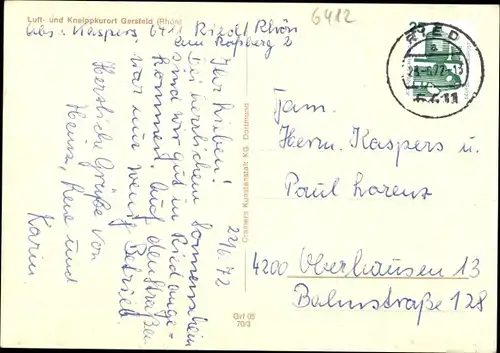 Luft- und Kneippkurort Gersfeld (Rhön)
6412
Abs. Kaspers 6411 Riedl Rhön
am Roßberg 2
22/6.72
Ihr Lieben!
bei herrlichem Sonnenschein
sind wir gut in Ried ange-
kommen. Auf den Straßen
war nur wenig Betrieb.
Herzliche Grüße von
Heinz, Rene und
Karin
Cramers Kunstanstalt KG. Dortmund
Grf 05
70/3
25
RIED
a
-6.72-13
6411
Fam.
Herrn. Kaspers u.
Paul Lorenz
4200 Oberhausen 13
Bahnstraße 128